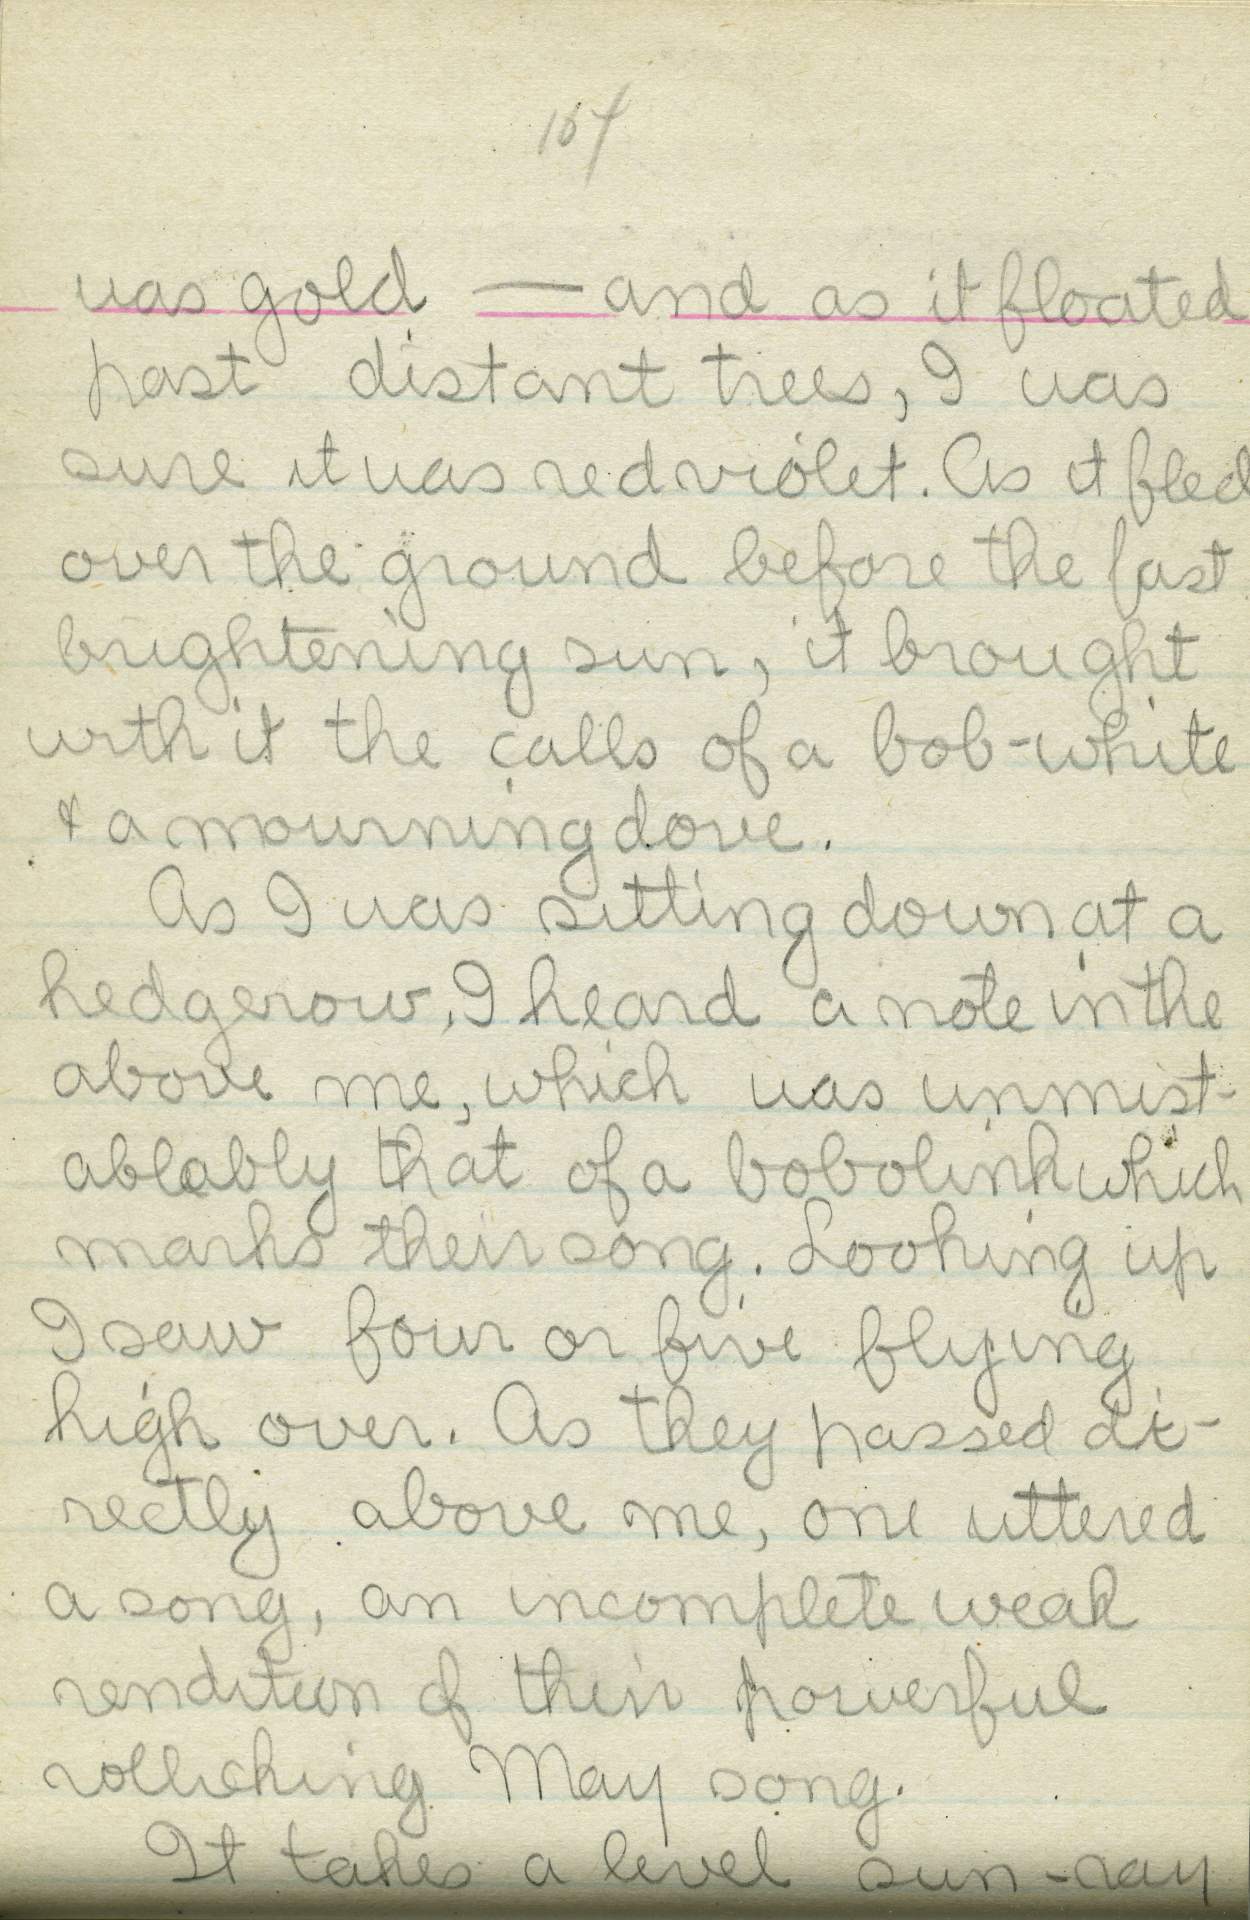 167
was gold — and as it floated
past distant trees, I was
sure it was red violet. As it fled
over the ground before the fast
brightening sun, it brought
with it the calls of a bob-white
& a mourning dove.
As I was sitting down at a
hedgerow, I heard a note in the
above me, which was unmist-
ablably that of a bobolink which
marks their song. Looking up
I saw four or five flying
high over. As they passed di-
rectly above me, one uttered
a song, an incomplete weak
rendition of their powerful
rollicking May song.
It takes a level sun-ray